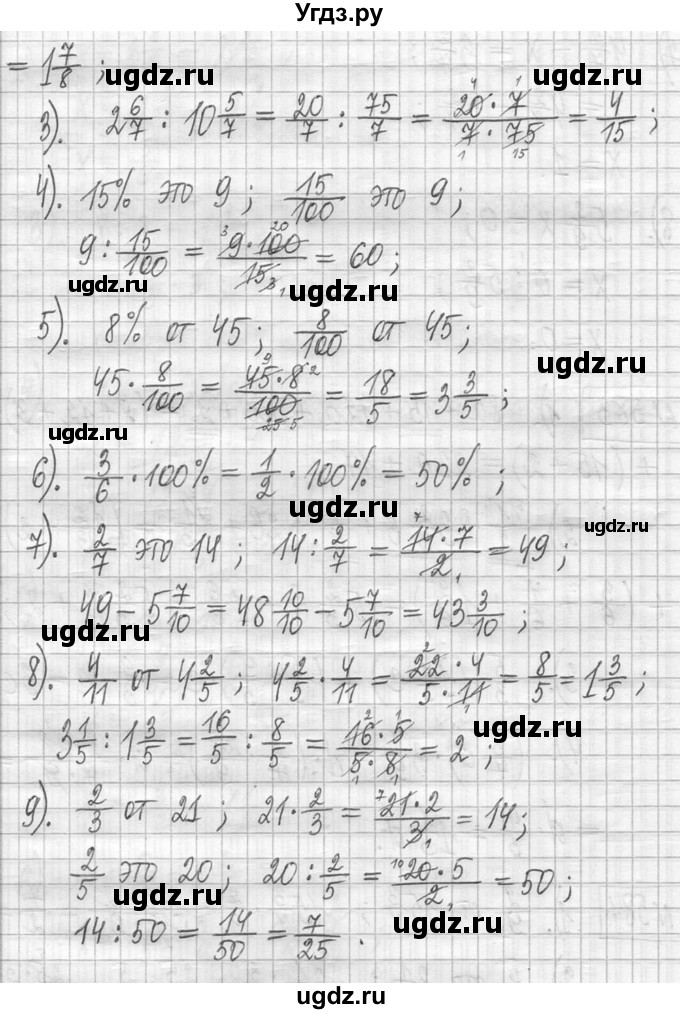 Угдз.ру
= 1 7/8 ;
ugdz.ru ugdz.ru
3). 2 6/7 : 10 5/7 = 20/7 : 75/7 = 20·7/7·75 = 4/15 ;
4). 15% это 9 ; 15/100 это 9 ;
9 : 15/100 = 9·100/15 = 60 ;
ugdz.ru ugdz.ru
5). 8% от 45 ; 8/100 от 45 ;
ugdz.ru
45 · 8/100 = 45·8/100 = 18/5 = 3 3/5 ;
ugdz.ru
6). 3/6 · 100% = 1/2 · 100% = 50% ;
ugdz.ru ugdz.ru
7). 2/7 это 14 ; 14 : 2/7 = 14·7/2 = 49 ;
49 − 5 7/10 = 48 10/10 − 5 7/10 = 43 3/10 ;
ugdz.ru ugdz.ru
8). 4/11 от 4 2/5 ; 4 2/5 · 4/11 = 22·4/5·11 = 8/5 = 1 3/5 ;
ugdz.ru
3 1/5 : 1 3/5 = 16/5 : 8/5 = 16·5/5·8 = 2 ;
ugdz.ru
9). 2/3 от 21 ; 21 · 2/3 = 21·2/3 = 14 ;
2/5 это 20 ; 20 : 2/5 = 20·5/2 = 50 ;
ugdz.ru ugdz.ru
14 : 50 = 14/50 = 7/25 .
ugdz.ru